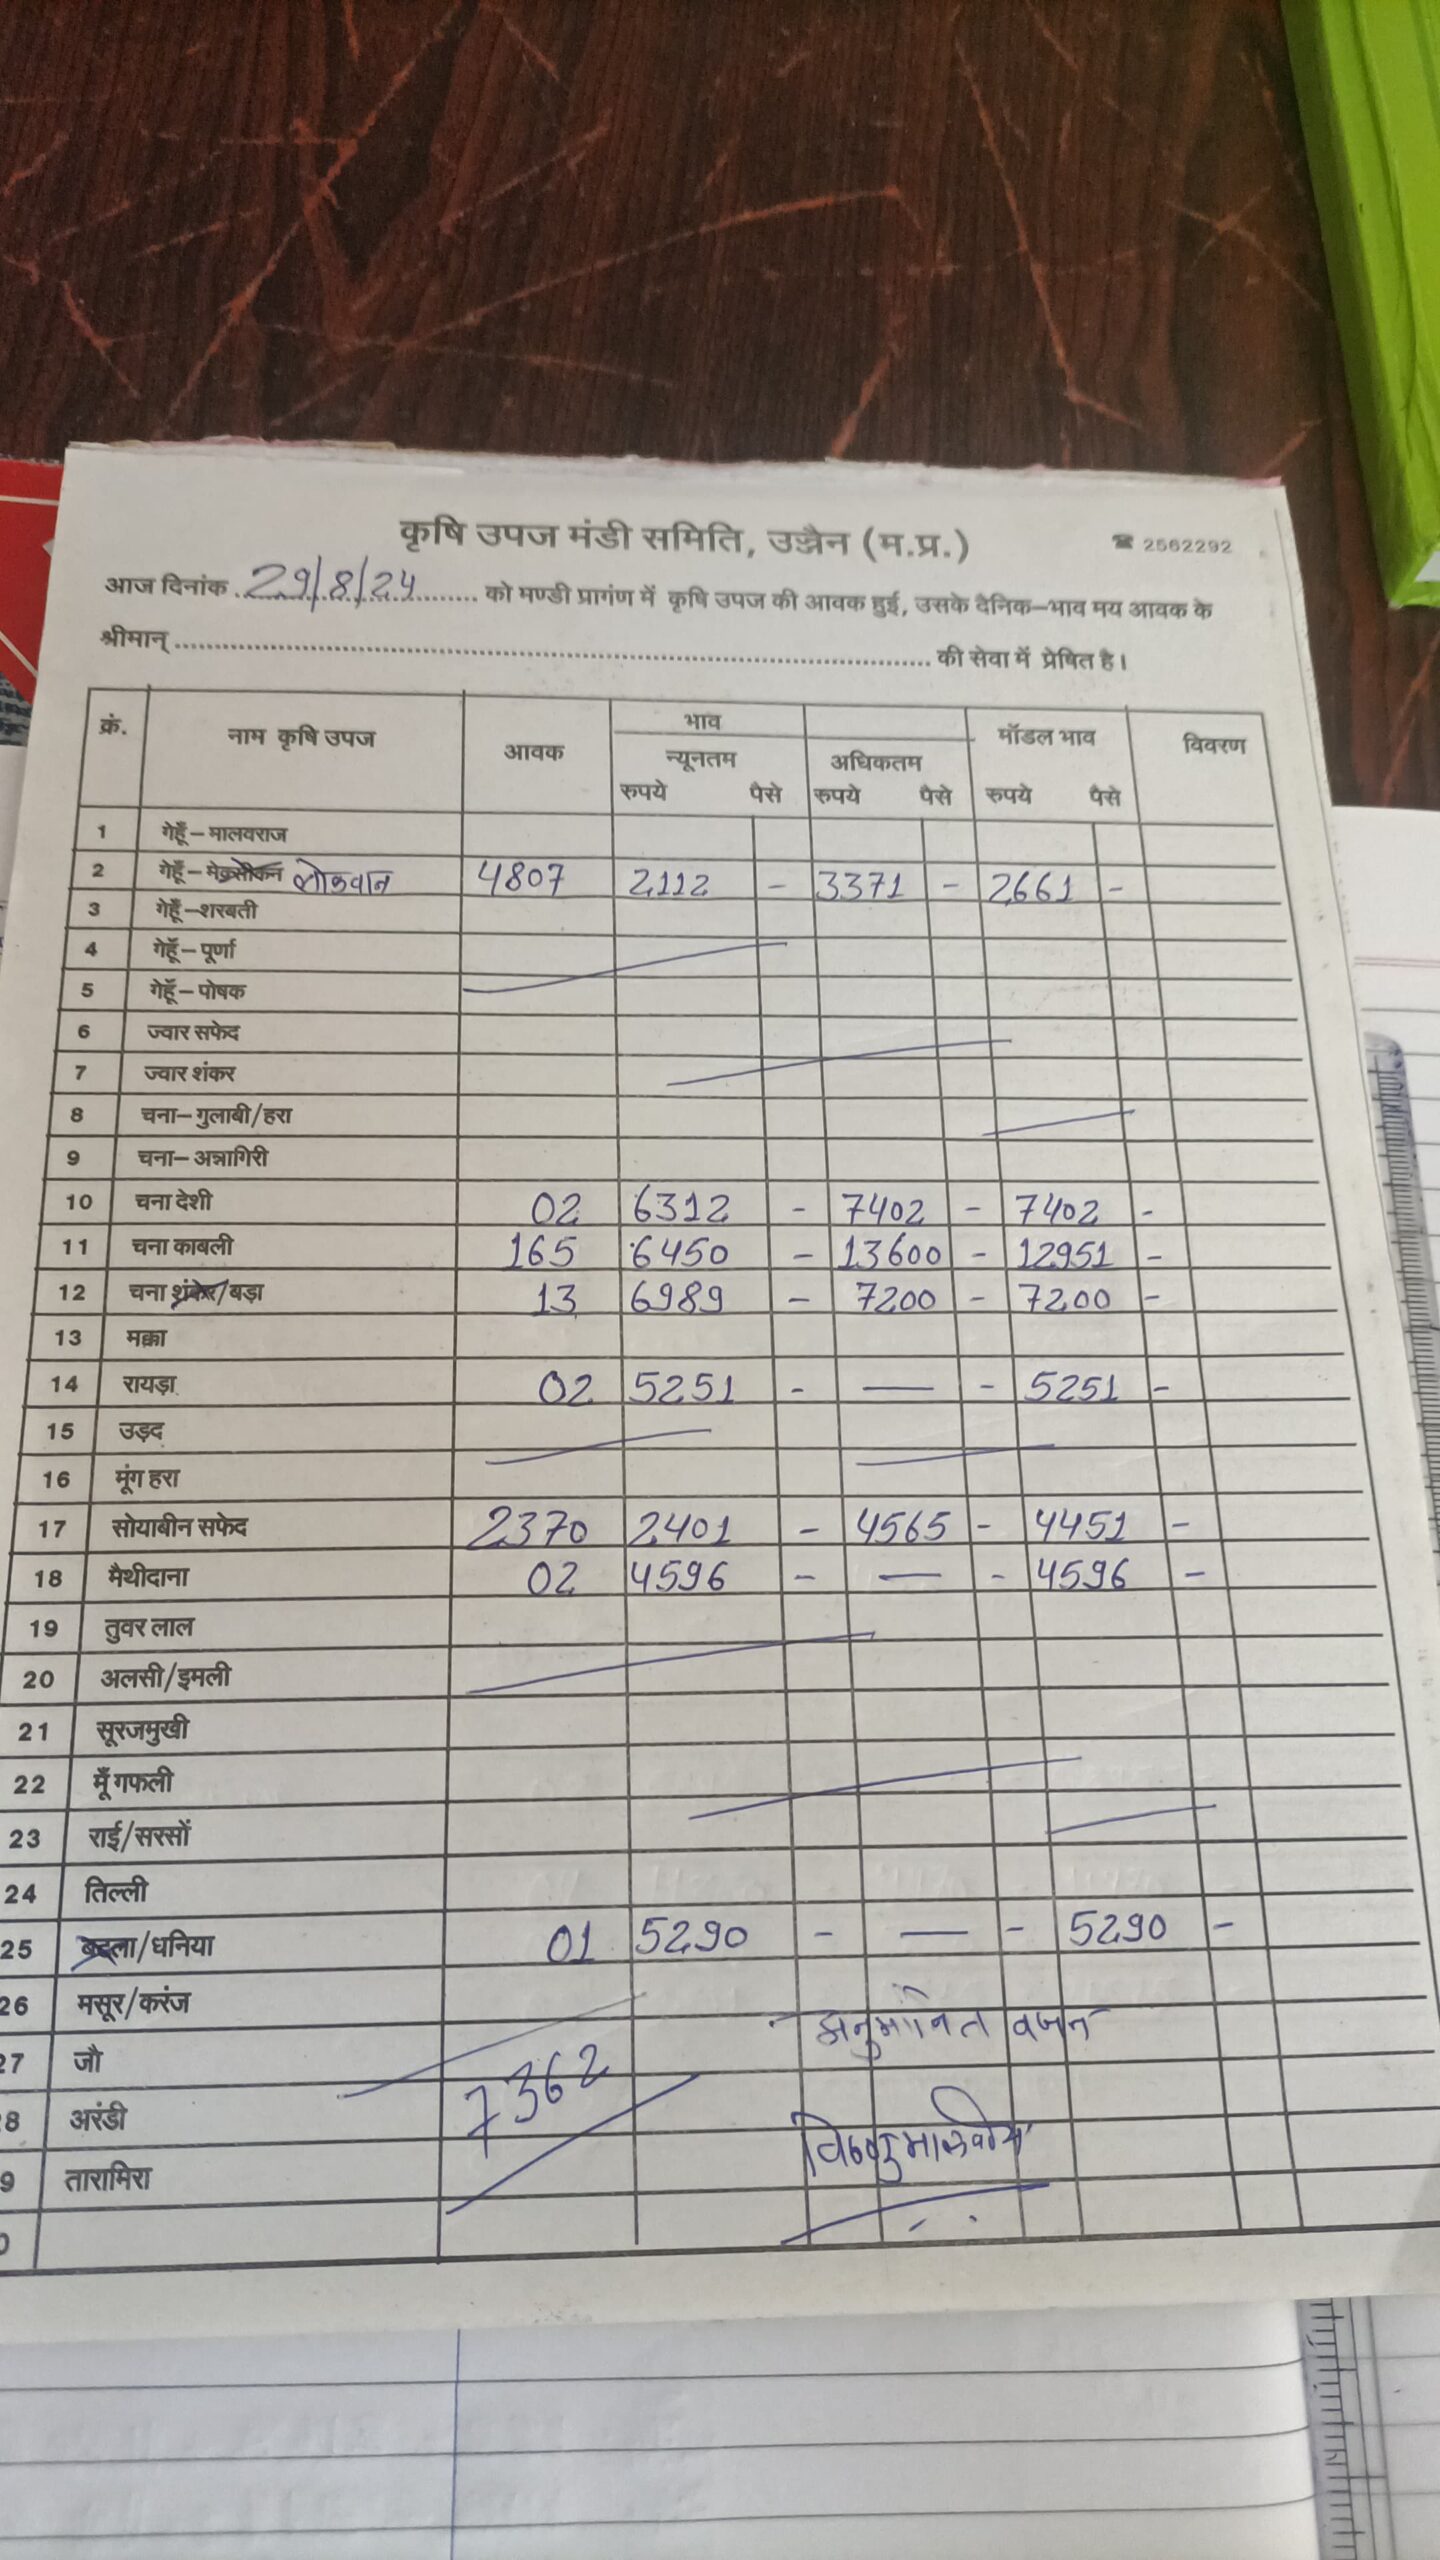 कृषि उपज मंडी समिति, उज्जैन (म.प्र.) ☎ 2562292
आज दिनांक 29/8/24 को मण्डी प्रागंण में कृषि उपज की आवक हुई, उसके दैनिक–भाव मय आवक के
श्रीमान् ........ की सेवा में प्रेषित है।
क्रं. नाम कृषि उपज आवक भाव मॉडल भाव विवरण
न्यूनतम अधिकतम
रुपये पैसे रुपये पैसे रुपये पैसे
1 गेहूँ – मालवराज
2 गेहूँ – मेक्सीकन लोकवान 4807 2112 - 3371 - 2661 -
3 गेहूँ –शरबती
4 गेहूँ – पूर्णा
5 गेहूँ – पोषक
6 ज्वार सफेद
7 ज्वार शंकर
8 चना– गुलाबी/हरा
9 चना– अन्नागिरी
10 चना देशी 02 6312 - 7402 - 7402 -
11 चना काबली 165 6450 - 13600 - 12951 -
12 चना शंकर/बड़ा 13 6989 - 7200 - 7200 -
13 मक्का
14 रायड़ा 02 5251 - — - 5251 -
15 उड़द
16 मूंग हरा
17 सोयाबीन सफेद 2370 2401 - 4565 - 4451 -
18 मैथीदाना 02 4596 - — - 4596 -
19 तुवर लाल
20 अलसी/इमली
21 सूरजमुखी
22 मूँगफली
23 राई/सरसों
24 तिल्ली
25 बटला/धनिया 01 5290 - — - 5290 -
26 मसूर/करंज
अनुमानित वजन
27 जौ
7362
28 अरंडी
विष्णु मालवीय
29 तारामिरा